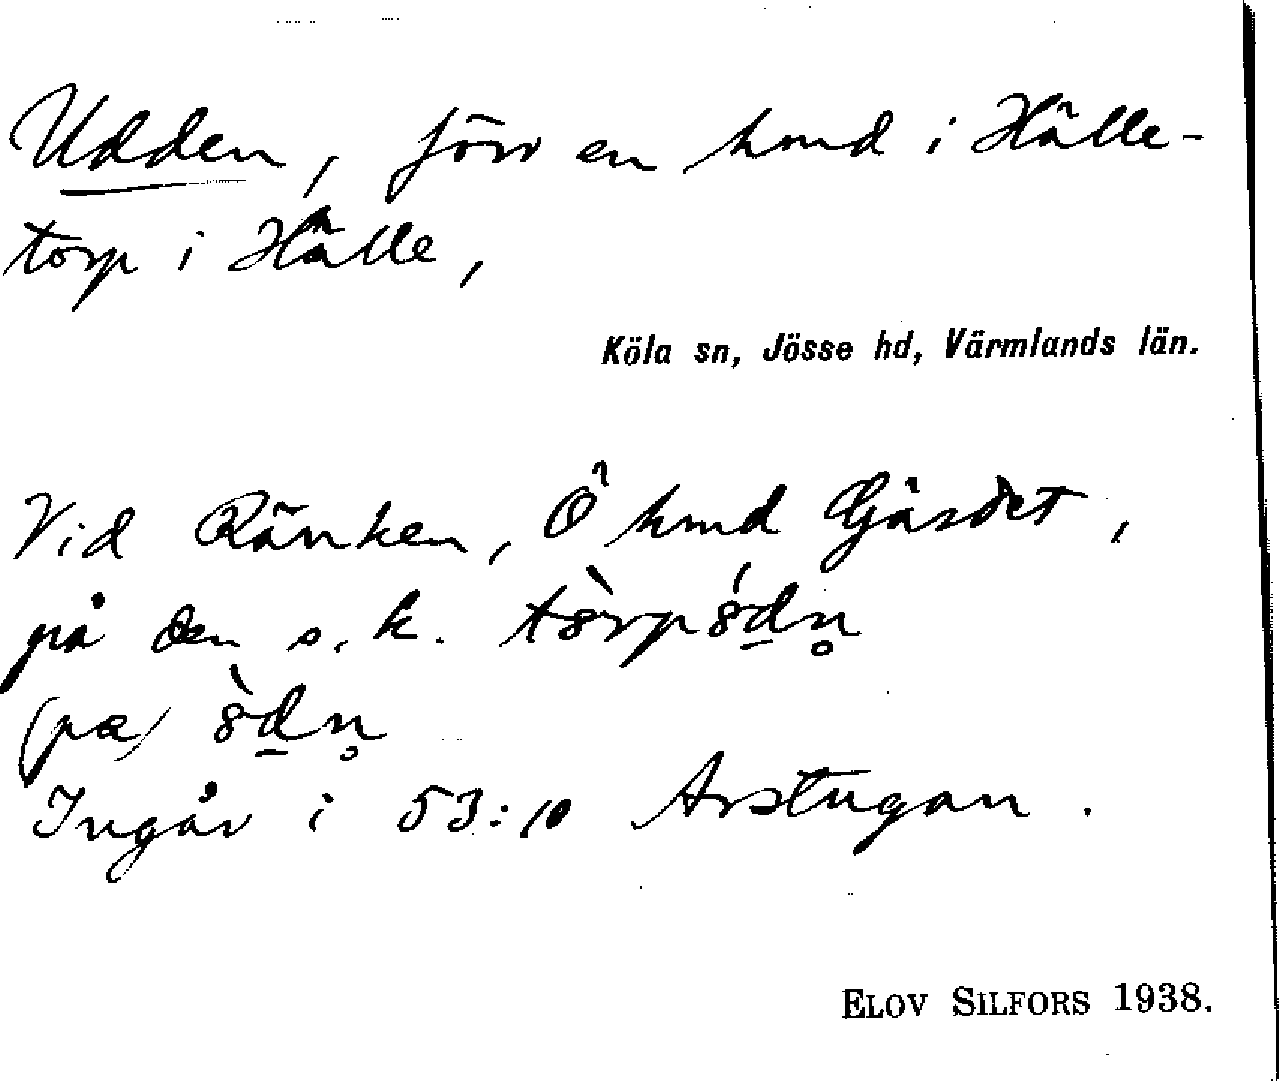 Udden, förr en hmd i Hälle-
torp i Hälle,
Köla sn, Jösse hd, Värmlands län.
Vid Ränken, Ö hmd Gärdet,
på den s.k. tòrpódn̥
(pæ) òdn̥
Ingår i 53:10 Arstugan.
ELOV SILFORS 1938.